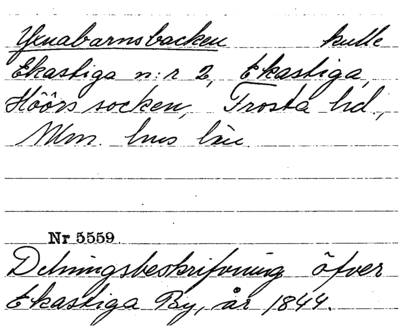 Ypnabarnsbacken kulle
Ekastiga n:r 2, Ekastiga,
Höörs socken, Frosta hd.,
Mlm. hus län.
Nr 5559
Delningsbeskrifvning öfver
Ekastiga By, år 1844.